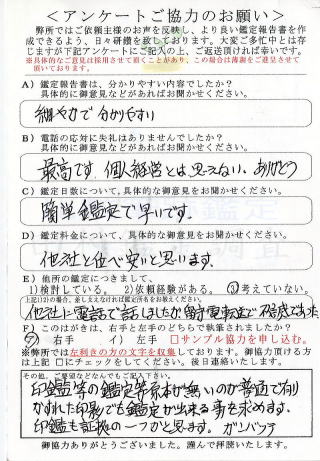 ＜アンケートご協力のお願い＞
弊所ではご依頼主様のお声を反映し、より良い鑑定報告書を作
成できるよう、日々研鑽を致しております。大変ご多忙中とは存
じますが下記アンケートにご記入の上、ご返送頂ければ幸いです。
※具体的なご意見は採用させて頂くことがあり、この場合は薄謝をご進呈させて
頂いております。
A）鑑定報告書は、分かりやすい内容でしたか？
具体的に御意見などがあればお聞かせください。
細やかで分かりやすい
B）電話の応対に失礼はありませんでしたか？
具体的に御意見などがあればお聞かせください。
最高です。個人経営とは思えない、ありがとう
C）鑑定日数について、具体的な御意見をお聞かせください。
簡単鑑定で早いです。
D）鑑定料金について、具体的な御意見をお聞かせください。
他社と比べ安いと思います。
E）他所の鑑定につきまして、
1)検討している。 2)依頼経験がある。 3)考えていない。
上記1)2)の場合、差し支えなければ鑑定所名をお教えください。
他社に電話で話しましたが留守電転送で不信感であった
F）このはがきは、右手と左手のどちらで執筆されましたか？
ア）右手 イ）左手 □サンプル協力を申し込む。
※弊所では左利きの方の文字を収集しております。御協力頂ける方
は上記□にチェックをしてください。後日連絡いたします。
その他、ご要望などなんでもご記入下さい。
印鑑等の鑑定等原本が無いのが普通で有り
かすれた印影でも鑑定が出来る事を求めます。
印鑑も証拠の一つかと思います。ガンバッテ
御協力ありがとうございました。謹んで拝読いたします。